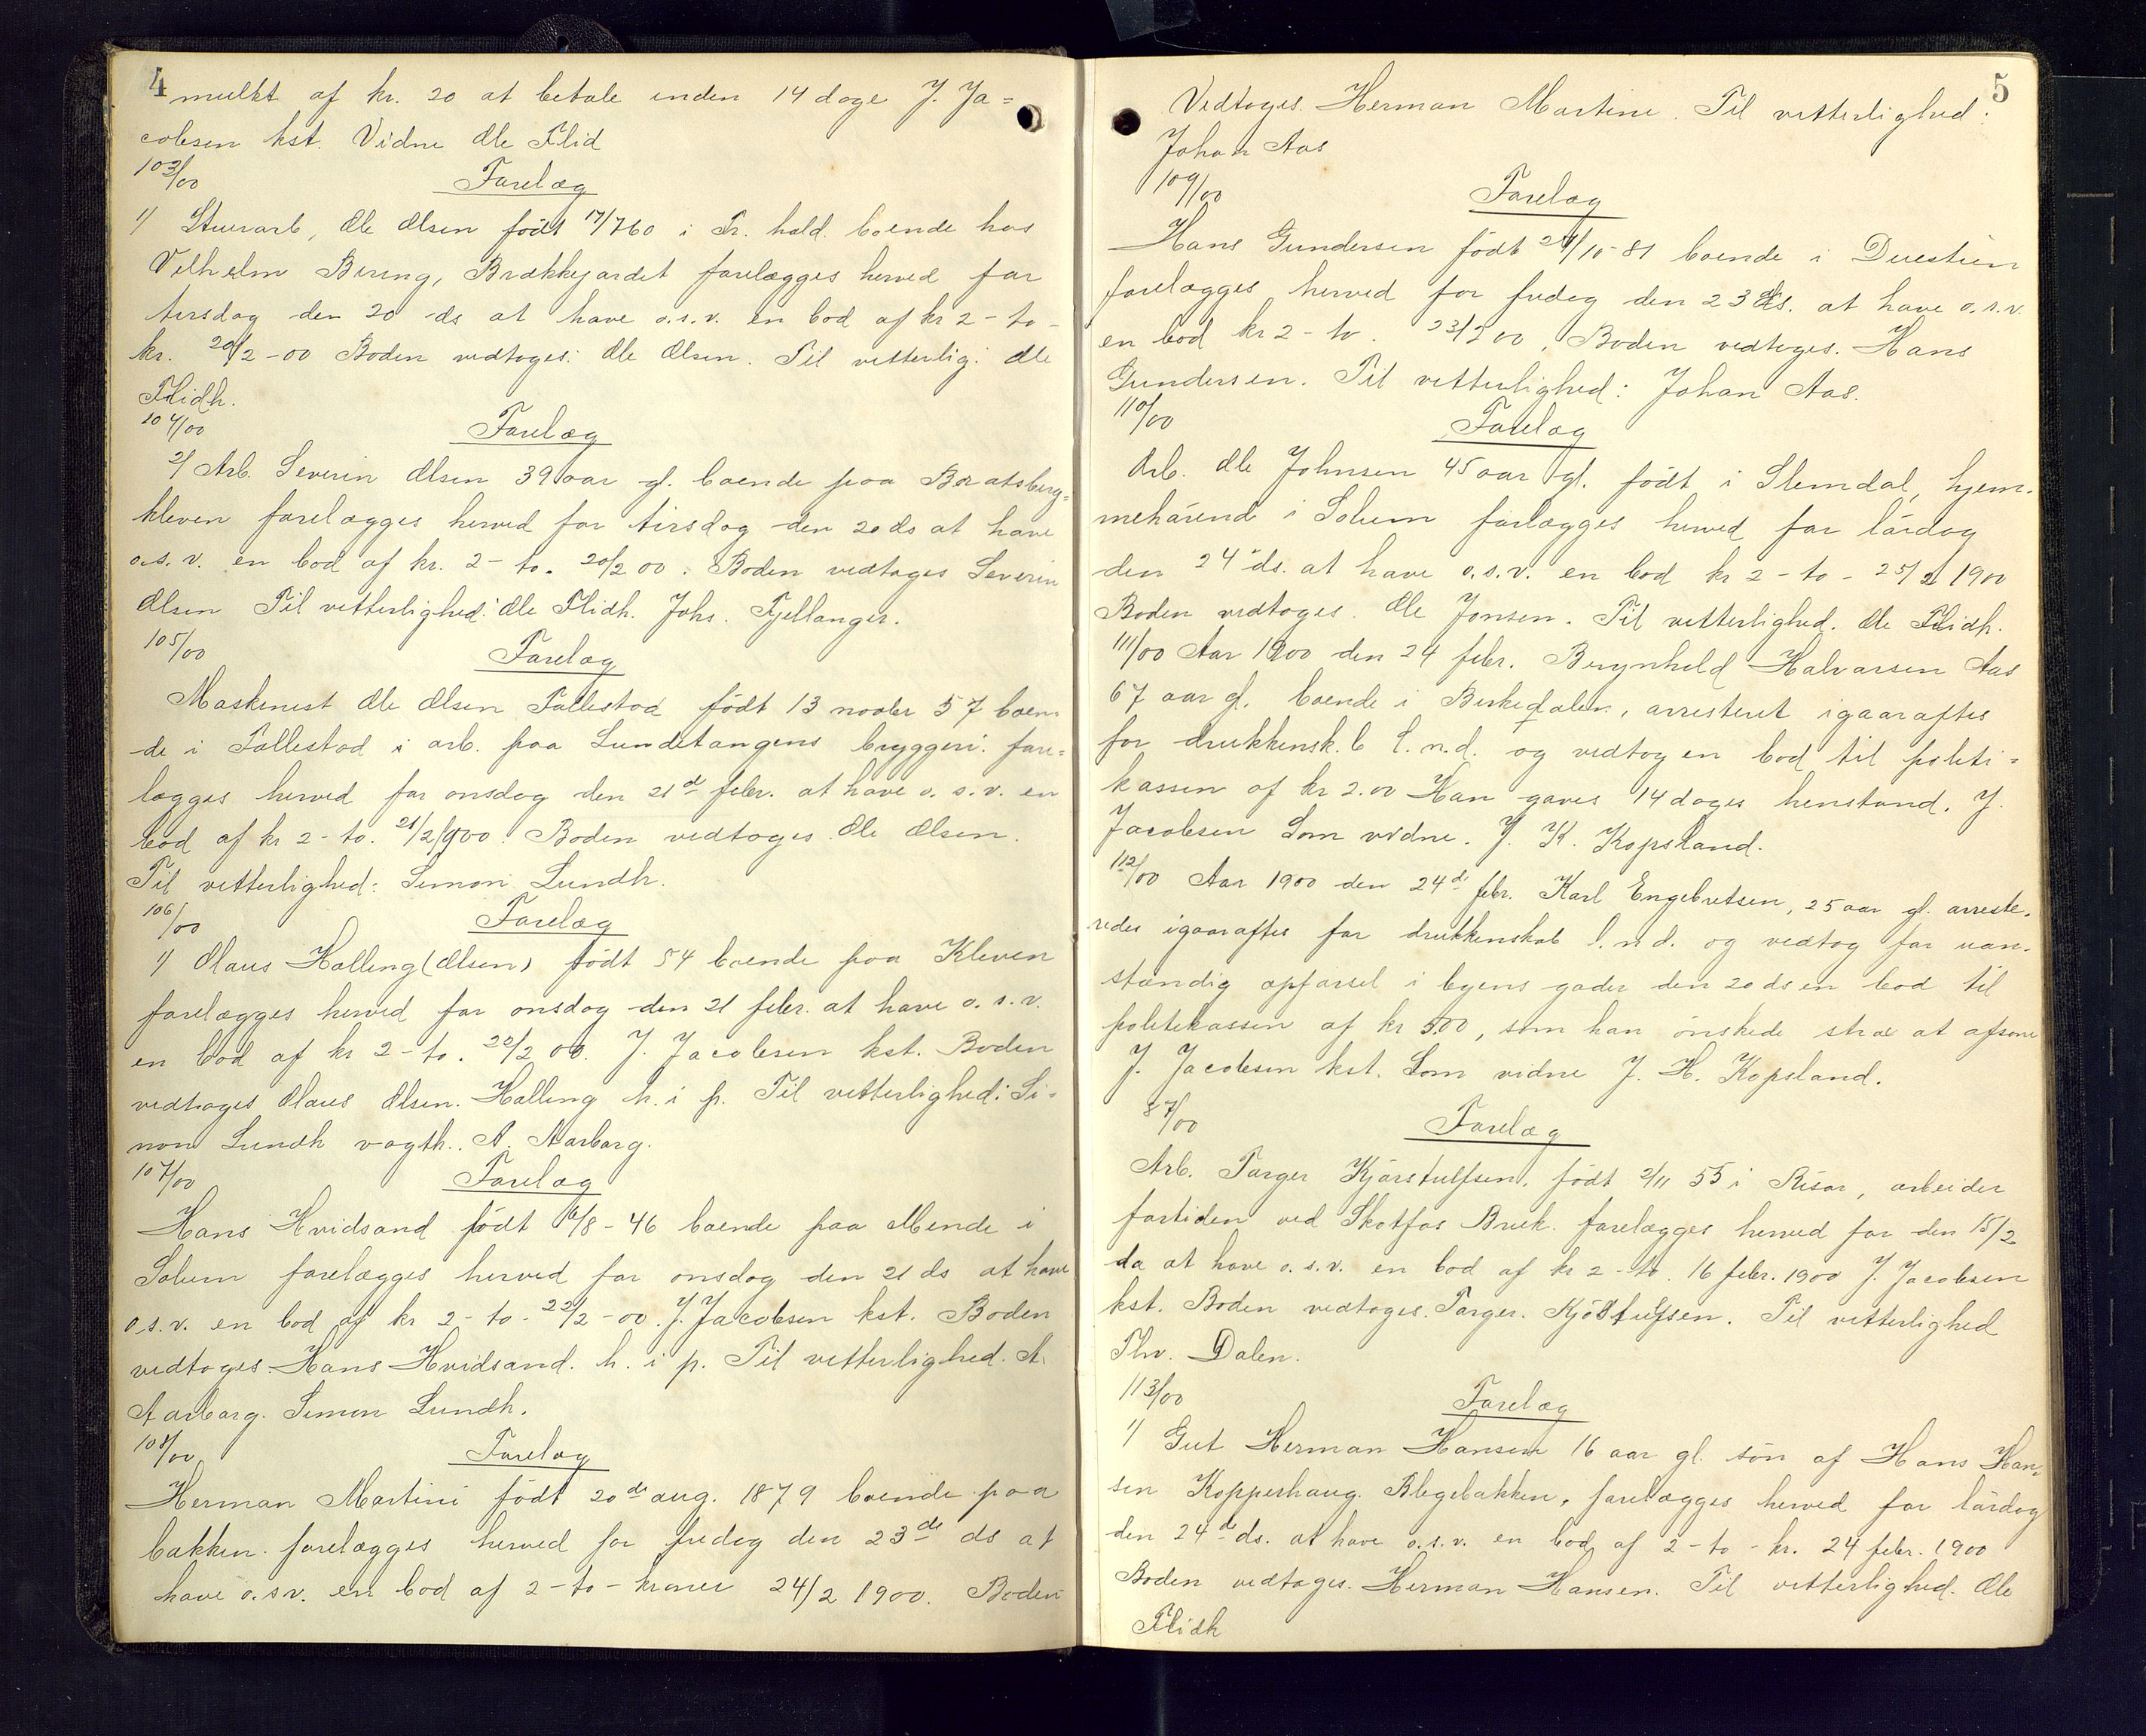 4
mulkt af kr. 20 at betale inden 14 dage J. Ja=
cobsen kst. Vidne Ole Flid
103/00
Forelæg
1/ Stuerarb, Ole Olsen födt 17/7 60 i Fr. hald. boende hos
Vilhelm Bering, Brækkejordet forelægges herved for
tirsdag den 20 ds at have o.s.v. en bod af kr 2 - to -
kr. 20/2-00 Boden vedtoges: Ole Olsen. Til vetterlig: Ole
Flidh.
104/00
Forelæg
2/ Arb. Severin Olsen 39 aar gl. boende paa Bratsberg=
kleven forelægges herved for tirsdag den 20 ds at have
o.s.v. en bod af kr. 2 - to. 20/2 00. Boden vedtoges Severin
Olsen Til vetterlighed: Ole Flidh. Johs. Fjellanger.
105/00
Forelæg
Maskinist Ole Olsen Follestad födt 13 novbr 57 boen
de i Follestad i arb. paa Lundetangens bryggeri. fore=
lægges herved for onsdag den 21de febr. at have o.s.v. en
bod af kr 2 - to. 21/2 1900. Boden vedtoges Ole Olsen.
Til vetterlighed: Simon Lundh.
106/00
Forelæg
1/ Olaus Halling (Olsen) födt 54 boende paa Kleven
forelægges herved for onsdag den 21 febr. at have o.s.v.
en bod af kr 2 - to. 20/2 00. J. Jacobsen kst. Boden
vedtoges Olaus Olsen. Halling h. i p. Til vetterlighed: Si-
mon Lundh vagth. A. Aarborg.
107/00
Forelæg
Hans Hvidsand födt 6/8-46 boende paa Mende i
Solum forelægges herved for onsdag den 21 ds at have
o.s.v. en bod af kr 2 - to - 22/2-00. J. Jacobsen kst. Boden
vedtoges. Hans Hvidsand. h. i p. Til vetterlighed. A.
Aarborg. Simon Lundh.
108/00
Forelæg
Herman Martini födt 20de aug. 1879 boende paa
bakken. forelægges herved for fredag den 23de ds at
have o.s.v. en bod af 2 - to - kroner 24/2 1900. Boden
5
Vedtoges. Herman Martini. Til vetterlighed:
Johan Aas
109/00
Forelæg
Hans Gundersen födt 21/10-81 boende i Duestien
forelægges herved for fredag den 23 ds. at have o.s.v.
en bod kr 2 - to. 23/2 00. Boden vedtoges. Hans
Gundersen. Til vetterlighed: Johan Aas.
110/00
Forelæg
Arb. Ole Johnsen 45 aar gl. födt i Slemdal, hjem-
mehörende i Solum forlægges herved for lördag
den 24 ds. at have o.s.v. en bod kr 2 - to - 25/2 1900
Boden vedtoges. Ole Jonsen. Til vetterlighed. Ole Flidh.
111/00 Aar 1900 den 24 febr. Brynhild Halvorsen Aas
67 aar gl. boende i Birkedalen, arresteret igaaraftes
for drukkensk. b l.n.d. og vedtog en bod til politi=
kassen af kr 2.00 Han gaves 14 dages henstand. J.
Jacobsen Som vidne. J. K. Kopsland.
112/00 Aar 1900 den 24de febr. Karl Engebretsen, 25 aar gl. arreste-
redes igaaraftes for drukkenskab l.n.d. og vedtog for uan-
stændig opførsel i byens gader den 20 ds en bod til
politikassen af kr 5.00, som han önskede strax at afsone
J. Jacobsen kst. Som vidne J. H. Kopsland.
87/00
Forelæg
Arb. Torger Kjörstulfsen. födt 2/11 55 i Risör, arbeider
fortiden ved Skotfos Bruk. forelægges herved for den 15/2
da at have o.s.v. en bod af kr 2 - to. 16 febr. 1900 J. Jacobsen
kst. Boden vedtoges. Torger. Kjöstulfsen. Til vetterlighed
Thv. Dalen.
113/00
Forelæg
1/ Gut Herman Hansen 16 aar gl. sön af Hans Han-
sen Kopperhaug. Blegebakken, forelægges herved for lördag
den 24de ds. at have o.s.v. en bod af 2 - to - kr. 24 febr. 1900
Boden vedtoges. Herman Hansen. Til vetterlighed. Ole
Flidh